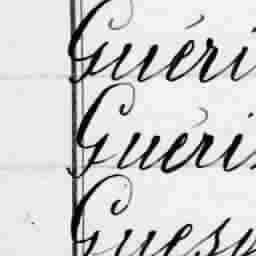 Guéri
Guéri
Guesq